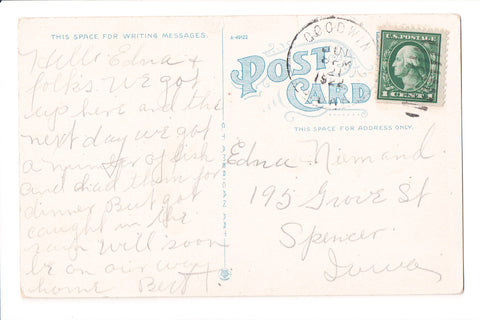 THIS SPACE FOR WRITING MESSAGES.
A-49123
POST CARD
THIS SPACE FOR ADDRESS ONLY.
GOODWIN
JUN
U.S. POSTAGE
1 CENT 1
Hello Edna &
folks. We got
up here and the
next day we got
a number of fish
and had them for
dinner But got
caught in the
rain will soon
be on our way
home Bert
Edna Niemand.
195 Grove St
Spencer
Iowa